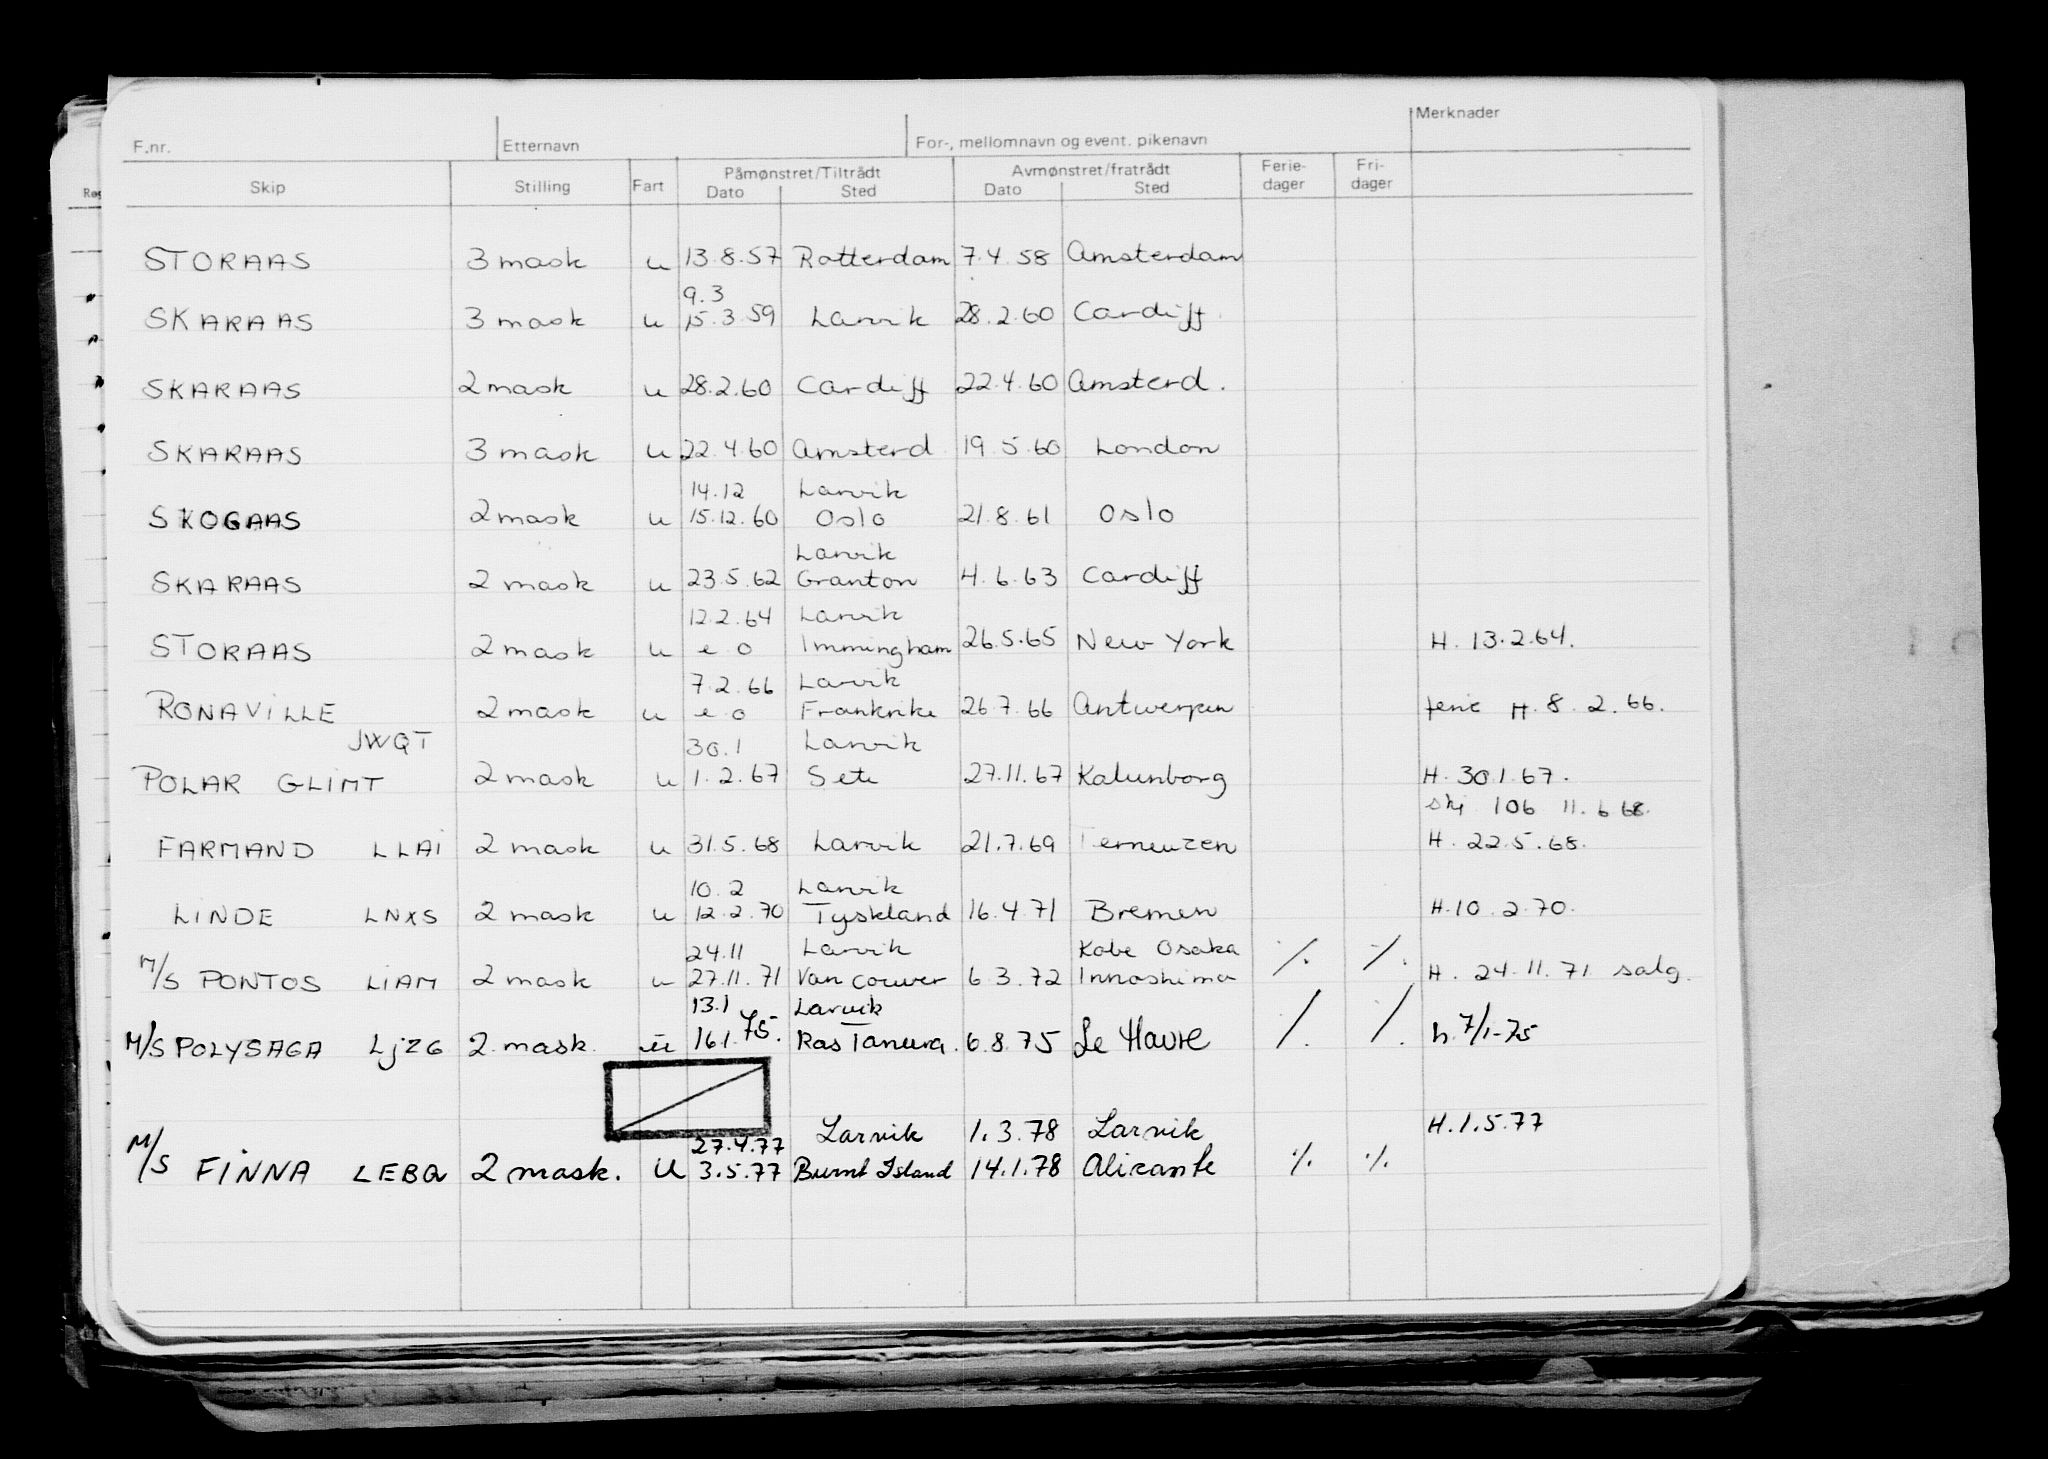 Merknader
F.nr. Etternavn For-, mellomnavn og event. pikenavn
Skip Stilling Fart Påmønstret/Tiltrådt Dato Sted Avmønstret/fratrådt Dato Sted Ferie-dager Fri-dager
STORAAS 3 mask u 13.8.57 Rotterdam 7.4.58 Amsterdam
9.3
SKARAAS 3 mask u 15.3.59 Larvik 28.2.60 Cardiff
SKARAAS 2 mask u 28.2.60 Cardiff 22.4.60 Amsterd.
SKARAAS 3 mask u 22.4.60 Amsterd 19.5.60 London
14.12 Larvik
SKOGAAS 2 mask u 15.12.60 Oslo 21.8.61 Oslo
Larvik
SKARAAS 2 mask u 23.5.62 Granton 4.6.63 Cardiff
12.2.64 Larvik
STORAAS 2 mask u e o Immingham 26.5.65 New York H. 13.2.64.
7.2.66 Larvik
RONAVILLE 2 mask u e o Frankrike 26.7.66 Antwerpen ferie H. 8.2.66.
JWQT 30.1 Larvik
POLAR GLIMT 2 mask u 1.2.67 Sete 27.11.67 Kalunborg H. 30.1.67.
106 11.6.68.
FARMAND LLAI 2 mask u 31.5.68 Larvik 21.7.69 Terneuzen H. 22.5.68.
10.2 Larvik
LINDE LNXS 2 mask u 12.2.70 Tyskland 16.4.71 Bremen H.10.2.70.
24.11 Larvik Kobe Osaka
M/S PONTOS LIAM 2 mask u 27.11.71 Vancouver 6.3.72 Innoshima ./. ./. H. 24.11.71 salg.
13.1 Larvik
M/S POLYSAGA LJZG 2 mask. u 16.1.75. Ras Tanura. 6.8.75 Le Havre /. /. h. 7/1-75
27.4.77 Larvik 1.3.78 Larvik H.1.5.77
M/S FINNA LEBQ 2 mask. U 3.5.77 Burnt Island 14.1.78 Alicante ./. ./.